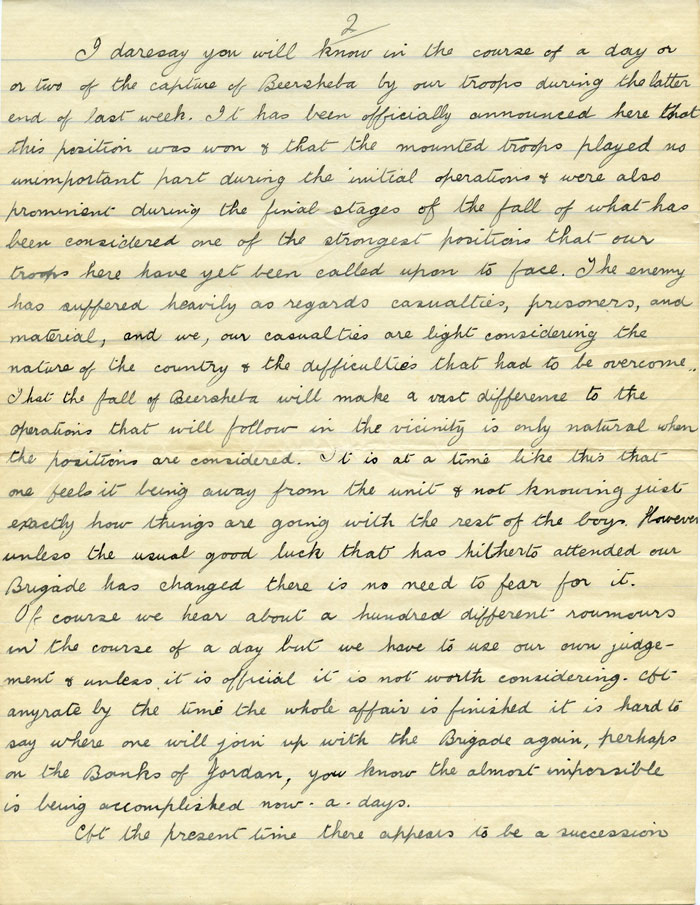 2
I daresay you will know in the course of a day or
or two of the capture of Beersheba by our troops during the latter
end of last week. It has been officially announced here that
this position was won & that the mounted troops played no
unimportant part during the initial operations & were also
prominent during the final stages of the fall of what has
been considered one of the strongest positions that our
troops here have yet been called upon to face. The enemy
has suffered heavily as regards casualties, prisoners, and
material, and we, our casualties are light considering the
nature of the country & the difficulties that had to be overcome..
That the fall of Beersheba will make a vast difference to the
operations that will follow in the vicinity is only natural when
the positions are considered. It is at a time like this that
one feels it being away from the unit & not knowing just
exactly how things are going with the rest of the boys. However
unless the usual good luck that has hitherto attended our
Brigade has changed there is no need to fear for it.
Of course we hear about a hundred different roumours
in the course of a day but we have to use our own judge-
ment & unless it is official it is not worth considering. At
anyrate by the time the whole affair is finished it is hard to
say where one will join up with the Brigade again, perhaps
on the Banks of Jordan, you know the almost impossible
is being accomplished now-a-days.
At the present time there appears to be a succession